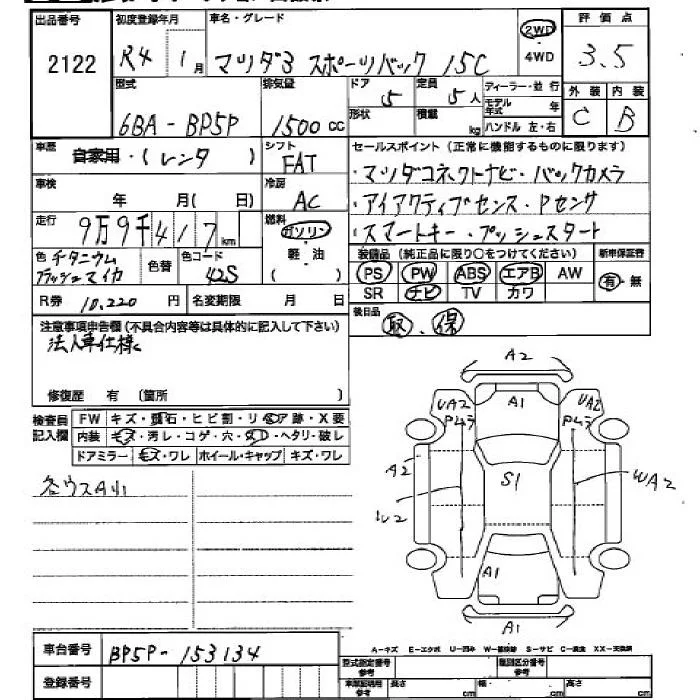 出品番号 初度登録年月 車名・グレード 評価点
2122 R4 1月 マツダ3 スポーツバック 15C 2WD ・4WD 3.5
型式 排気量 ドア 定員 ディーラー・並 行 外装 内装
6BA-BP5P 1500cc 5 5人 モデル年式 年 C B
形状 積載 kg ハンドル 左・右
車歴 シフト セールスポイント (正常に機能するものに限ります)
自家用・(レンタ) FAT ・マツダコネクトナビ・バックカメラ
車検 冷房 ・アイアクティブセンス・Pセンサ
年 月( 日) AC ・スマートキー・プッシュスタート
走行 燃料 装備品 (純正品に限り〇をつけてください) 新車保証書
9万9千417km ガソリン 軽・油 PS PW ABS エアB AW 有・無
色 チタニウムフラッシュマイカ 色替 色コード 42S ( ) SR ナビ TV カワ
R券 10,220円 名変期限 月 日 後日品 取.保
注意事項申告欄 (不具合内容等は具体的に記入して下さい)
法人車仕様
修復歴 有 (箇所 )
検査員記入欄 FW キズ・飛石・ヒビ割・リペア跡・X要
内装 キズ・汚レ・コゲ・穴・ヘタリ・破レ
ドアミラー キズ・ワレ ホイール・キャップ キズ・ワレ
A2
UA2 A1 UA2
Pムラ Pムラ
A2 S1 WA2
A1
A1
A-キズ E-エクボ U-凹ミ S-サビ
車台番号 BP5P-153134 型式指定番号 参考 類別区分番号 参考
登録番号 車庫証明用 参考 長さ cm 幅 cm 高さ cm